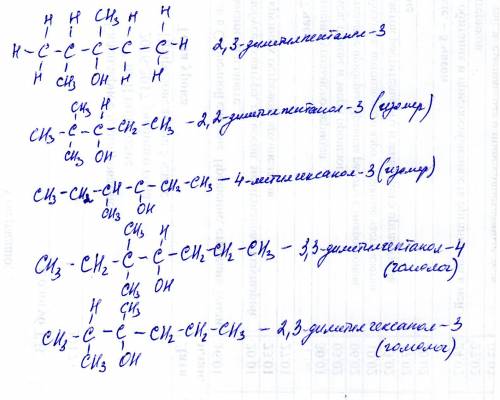 H H CH₃ H H
H-C-C-C-C-C-H 2,3-диметилпентанол-3
H CH₃ OH H H
CH₃ H
CH₃-C-C-CH₂-CH₃-2,2-диметилпентанол-3 (изомер)
CH₃ OH
CH₃-CH₂-CH-C-CH₂-CH₃-4-метилгексанол-3 (изомер)
CH₃ OH
CH₃ H
CH₃-CH₂-C-C-CH₂-CH₂-CH₃-3,3-диметилгептанол-4
CH₃ OH (гомолог)
H CH₃
CH₃-C-C-CH₂-CH₂-CH₃-2,3-диметилгексанол-3
CH₃ OH (гомолог)